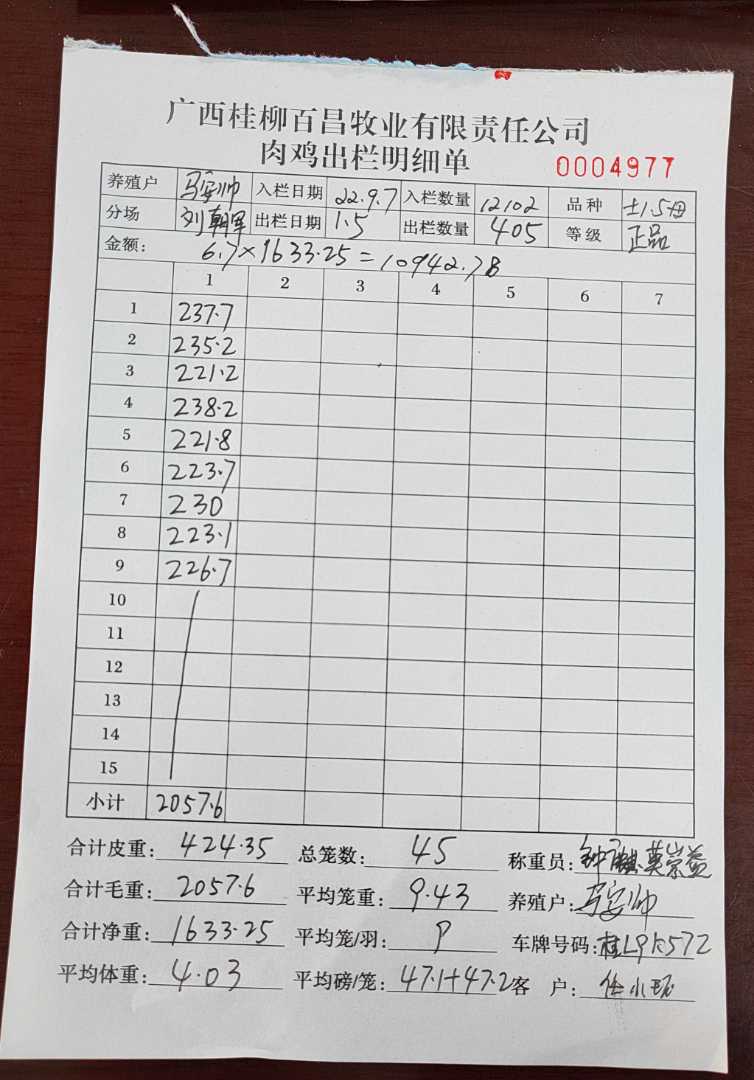 广西桂柳百昌牧业有限责任公司
肉鸡出栏明细单 0004977
养殖户 马安帅 入栏日期 22.9.7 入栏数量 12102 品种 土1.5母
分场 刘朝军 出栏日期 1.5 出栏数量 405 等级 正品
金额: 6.7×1633.25=10942.78
1 2 3 4 5 6 7
1 237.7
2 235.2
3 221.2
4 238.2
5 221.8
6 223.7
7 230
8 223.1
9 226.7
10
11
12
13
14
15
小计 2057.6
合计皮重: 424.35 总笼数: 45 称重员:
合计毛重: 2057.6 平均笼重: 9.43 养殖户: 马安帅
合计净重: 1633.25 平均笼/羽: 9 车牌号码: 桂L9K572
平均体重: 4.03 平均磅/笼: 47.1+47.2 客 户: